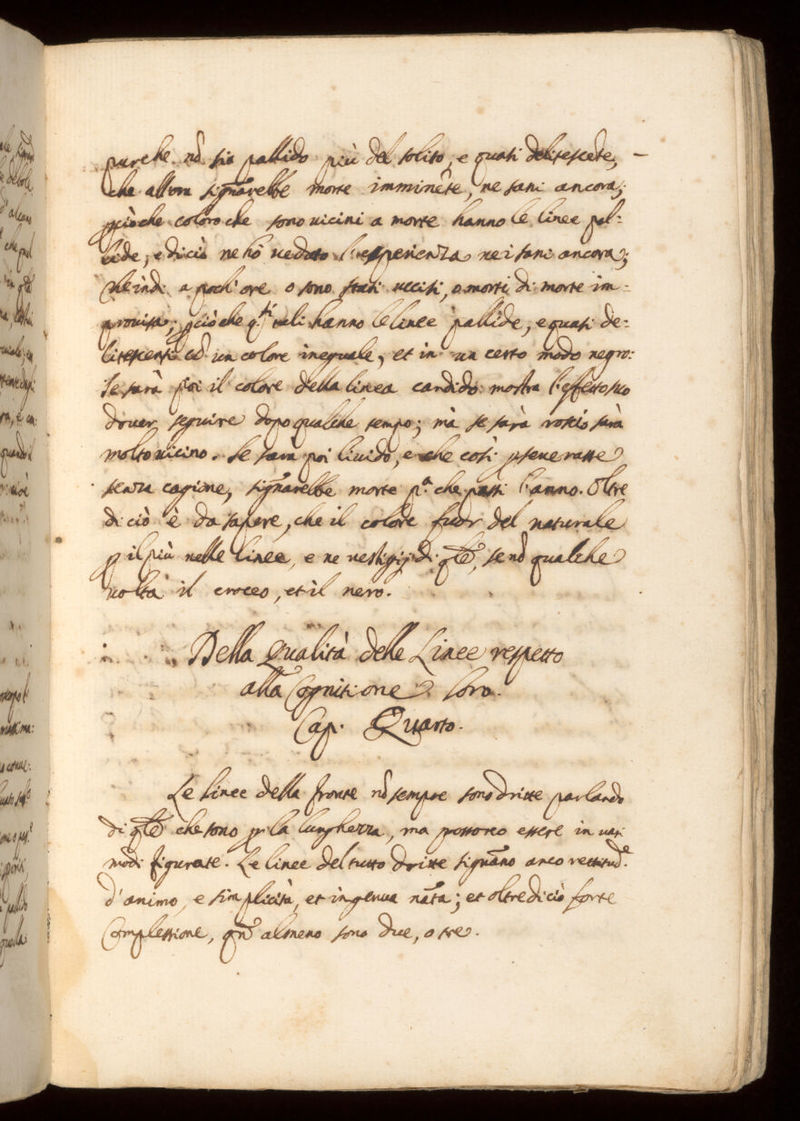 purche nõ sia pallido più del solito, e quasi delitescẽte, –
che allora signarebbe morte imminẽte, ne sani ancora;
pciòche coloro che sono vicini a morte hanno le linee pal-
lide, e di ciò ne hò veduto l'esperienza ne i sani ancora;
che indi a poch'ore o sono stati uccisi, o morti di morte im-
provisa; pciòche q.ti tali hanno le linee pallide, e quasi de-
litescenti cõ un colore ineguale, et in un certo modo negro:
Se sarà poi il colore della linea candido mostra l'effetto suo
dover seguire dopo qualche tempo; mà se sarà rosso sarà
molto vicino. Se sarà poi livido, e che così pseverasse
senza cagione, signarebbe morte p.a che passi l'anno. Oltre
di ciò è da sapere, che il colore fuor del naturale
p il più nelle linee, e ne vestigij di qlle, se nõ qualche
volta il croceo, et il nero.
Della Qualità delle Linee rispetto
alla Cognitione loro.
Cap. Quarto.
Le linee della fronte nõ sempre sono dritte parlando
di qlle che sono p la lunghezza, ma possono essere in varj
modi figurate. Le linee del tutto dritte signano anco rettitud.e
d'animo, e simplicità, et ingenua nãta; et oltre di ciò forte
Complessione, qñ almeno sono due, o tre.